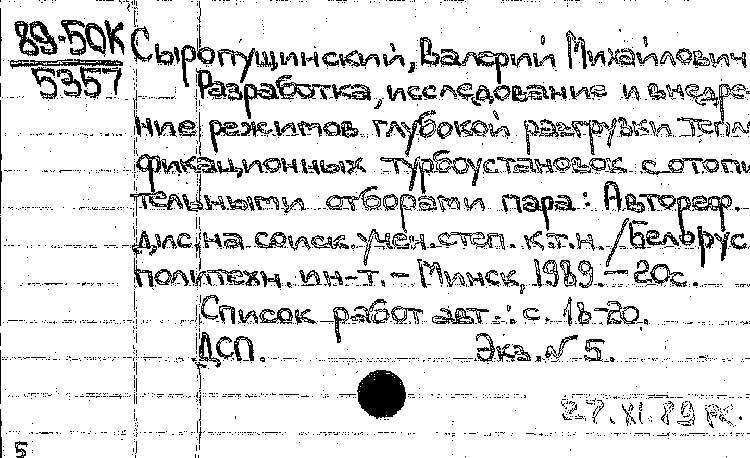 89-50К
5357
Сыропущинский, Валерий Михайлович
Разработка, исследование и внедре-
ние режимов глубокой разгрузки тепл
фикационных турбоустановок с отопи
тельными отборами пара: Автореф.
дис. на соиск. учен. степ. к.т.н. / Белорус.
политехн. ин-т. – Минск, 1989. – 20с.
Список работ авт.: с. 18-20.
ДСП. Экз. № 5.
27.XI.89
5